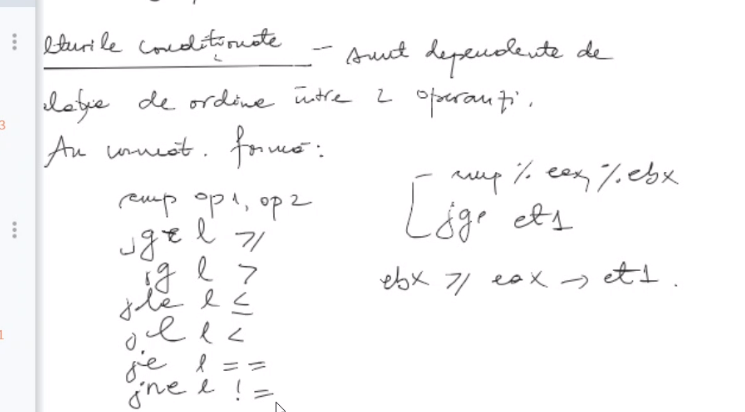 lturile condiționate – sunt dependente de
lație de ordine între 2 operanți.
Au următ. formă:
cmp op1, op2
jge l ≥
jg l >
jle l ≤
jl l <
je l ==
jne l !=
cmp %eax, %ebx
jge et1
ebx ≥ eax → et1.
3
1